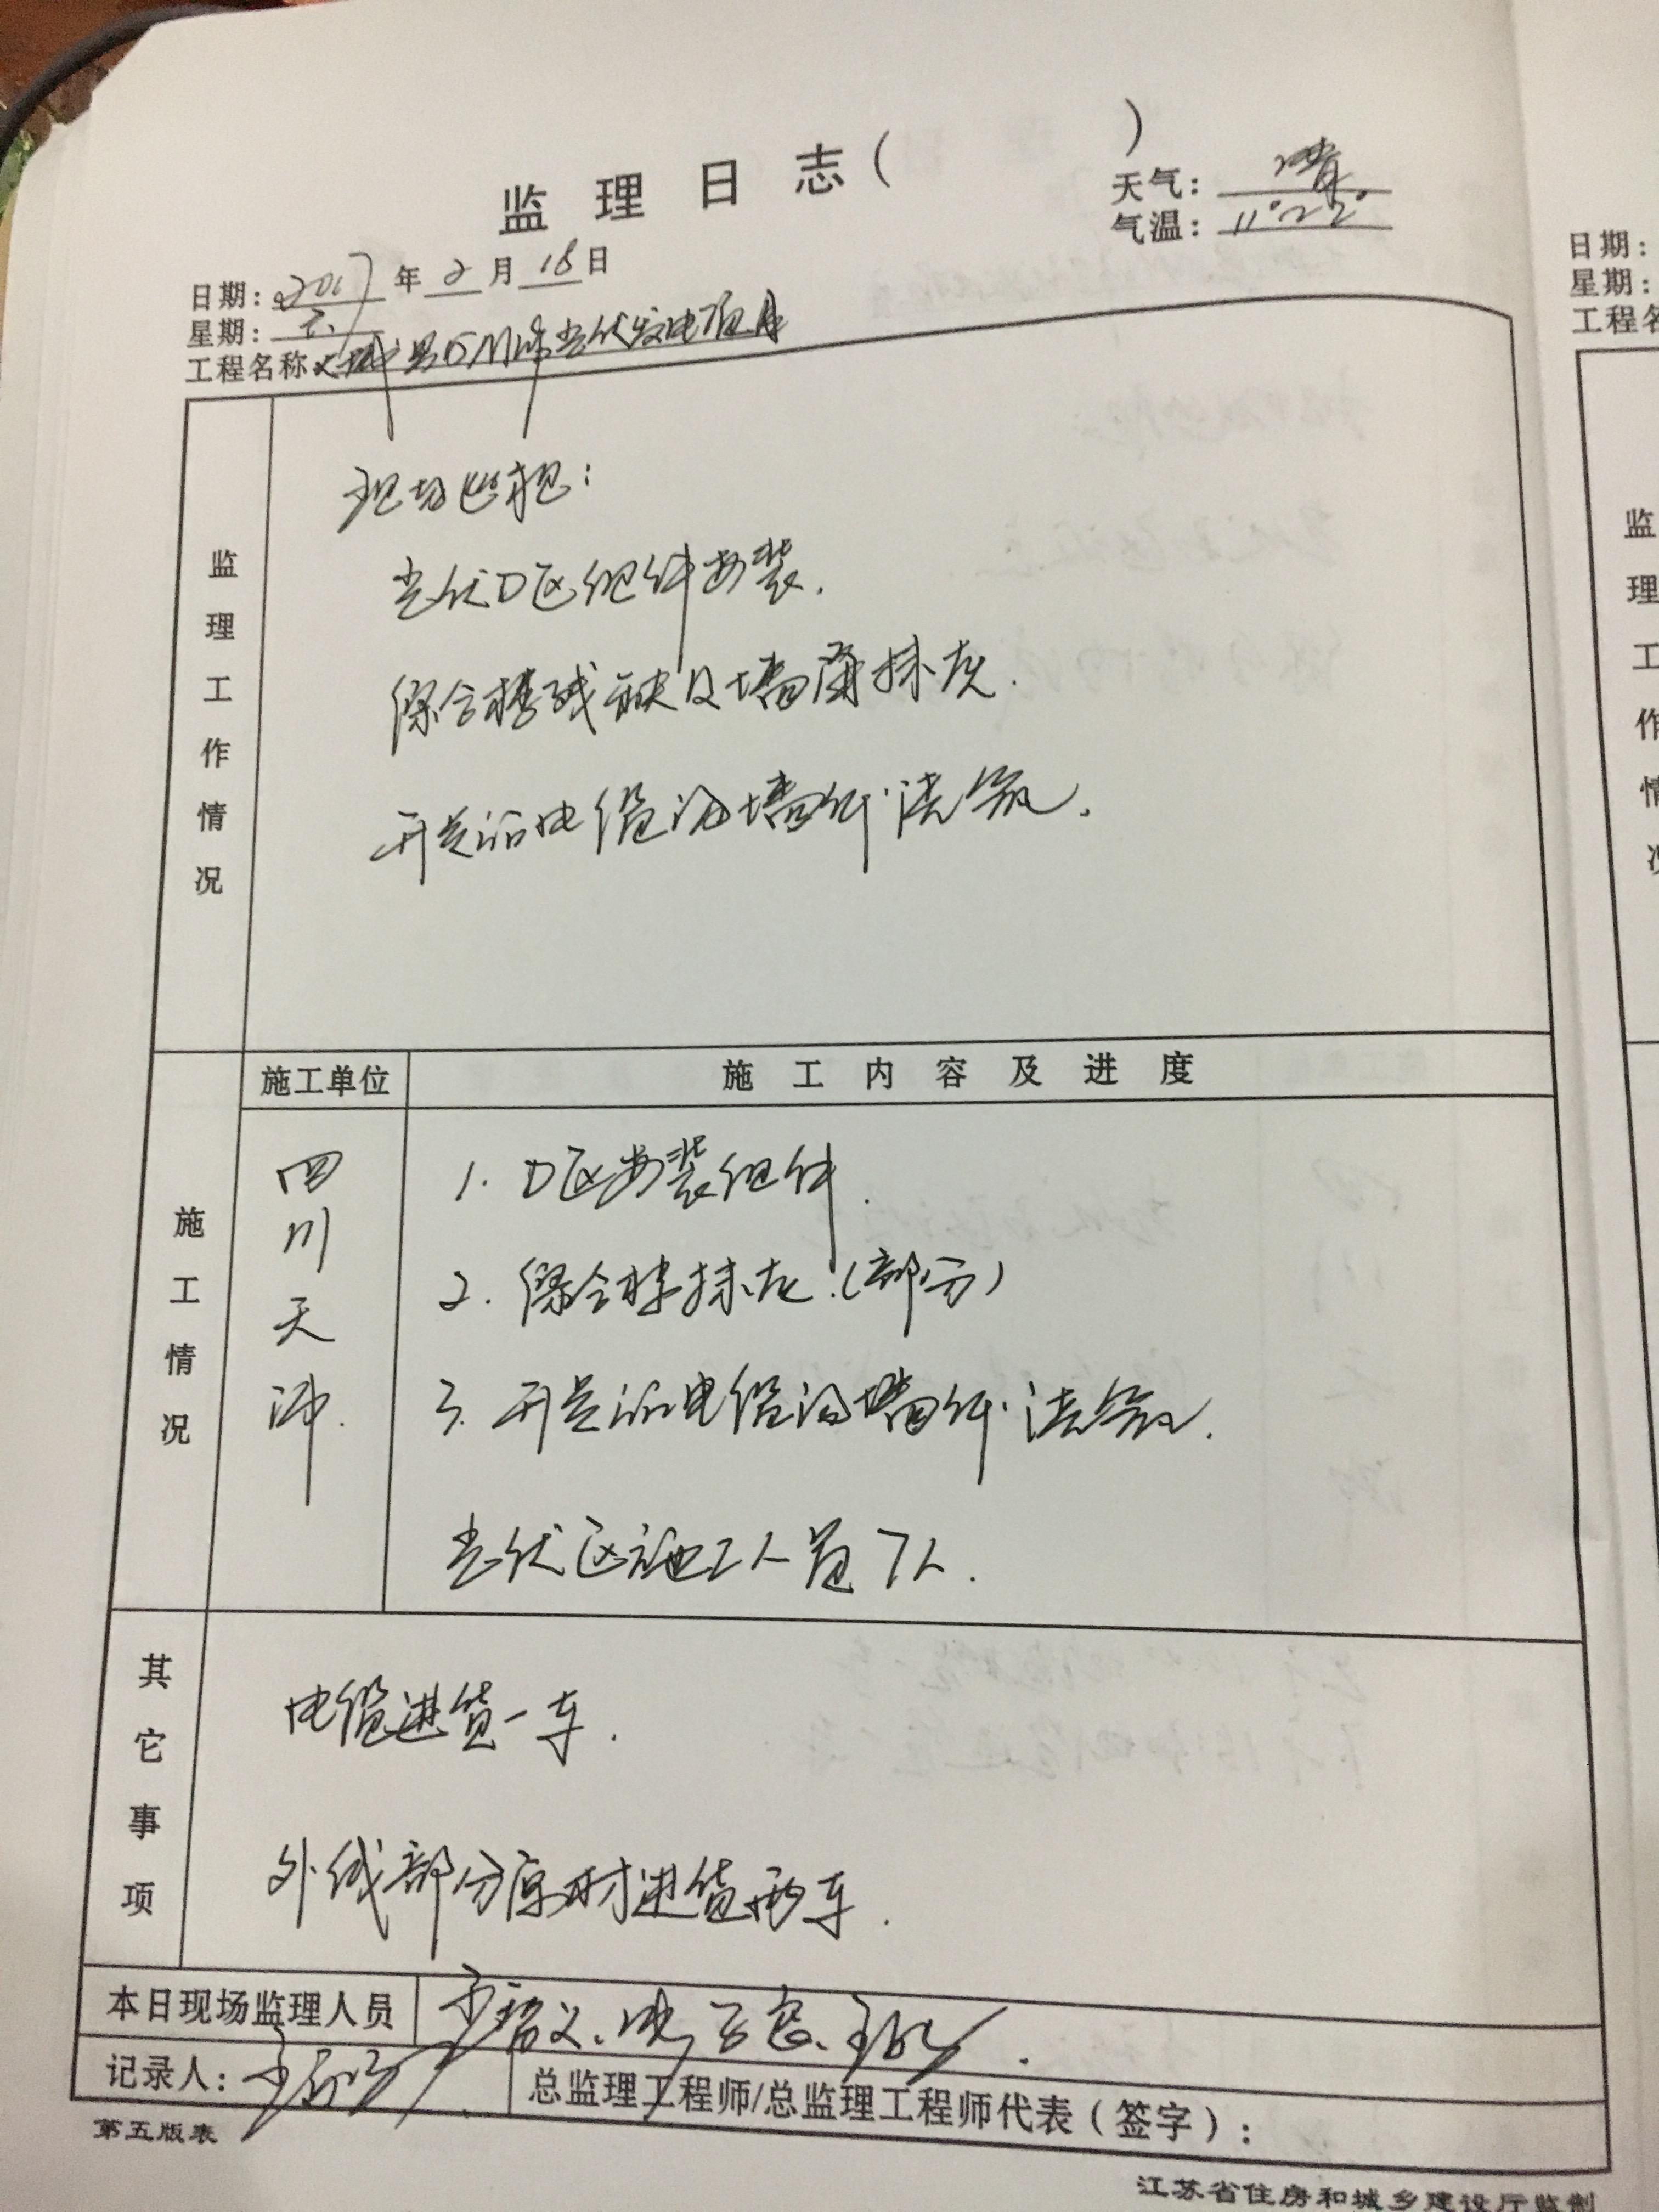 监理日志（ ）
天气：晴
气温：11°~22°
日期：2017年2月18日
星期：六
工程名称 城县 光伏发电项目
现场巡视：
监理工作情况
光伏D区组件安装.
综合楼 及墙面抹灰.
开关站电缆沟墙 浇筑.
施工单位 施工内容及进度
施工情况
四川天
1. D区安装组件.
2. 综合楼抹灰.(部分)
3. 开关站电缆沟墙 浇筑.
光伏区施工人员7人.
其它事项
电缆进货一车.
外线部分原材进货两车.
本日现场监理人员
记录人：
总监理工程师/总监理工程师代表（签字）：
第五版表
江苏省住房和城乡建设厅监制
日期：
星期：
工程名
监理工作情况